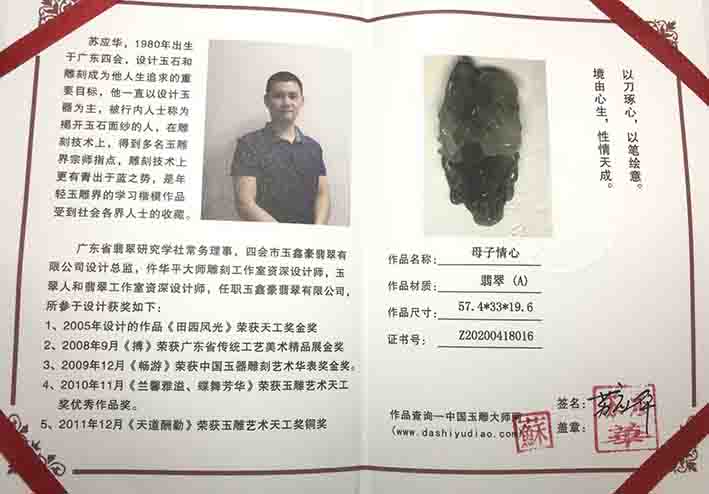 苏应华，1980年出生
于广东四会，设计玉石和
雕刻成为他人生追求的重
要目标，他一直以设计玉
器为主，被行内人士称为
揭开玉石面纱的人，在雕
刻技术上，得到多名玉雕
界宗师指点，雕刻技术上
更有青出于蓝之势，是年
轻玉雕界的学习楷模作品
受到社会各界人士的收藏。
广东省翡翠研究学社常务理事，四会市玉鑫豪翡翠有
限公司设计总监，仵华平大师雕刻工作室资深设计师，玉
翠人和翡翠工作室资深设计师，任职玉鑫豪翡翠有限公司，
所参于设计获奖如下：
1、2005年设计的作品《田园风光》荣获天工奖金奖
2、2008年9月《搏》荣获广东省传统工艺美术精品展金奖
3、2009年12月《畅游》荣获中国玉器雕刻艺术华表奖金奖。
4、2010年11月《兰馨雅溢、蝶舞芳华》荣获玉雕艺术天工
奖优秀作品奖。
5、2011年12月《天道酬勤》荣获玉雕艺术天工奖铜奖
以刀琢心，以笔绘意。
境由心生，性情天成。
作品名称：母子情心
作品材质：翡翠（A）
作品尺寸：57.4*33*19.6
证书号：Z20200418016
作品查询—中国玉雕大师网
(www.dashiyudiao.com)
蘇
签名：苏应华
盖章：
華